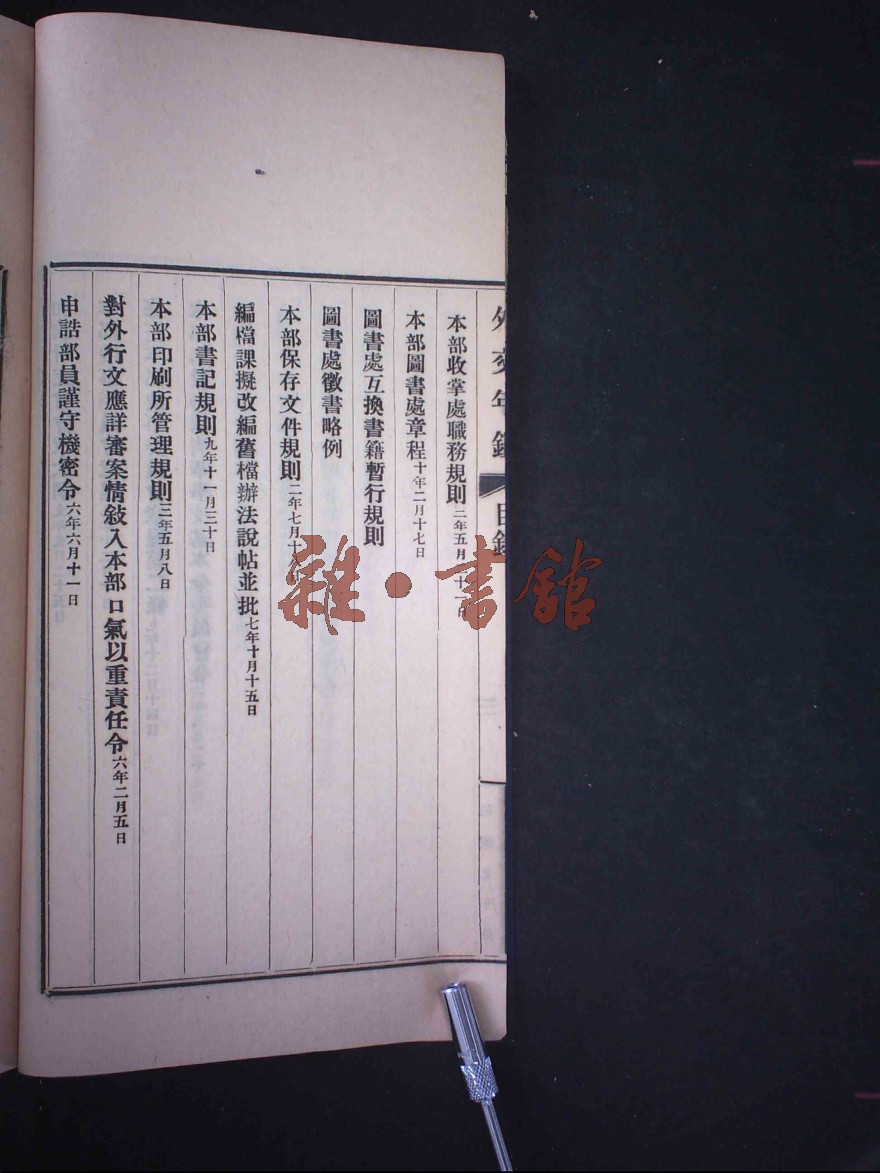 外交年鑑 目錄
本部收掌處職務規則二年五月二十一日
本部圖書處章程十年二月十七日
圖書處互換書籍暫行規則
圖書處徵書略例
本部保存文件規則二年七月十
編檔課擬改編舊檔辦法說帖並批七年十月十五日
本部書記規則九年十一月三十日
本部印刷所管理規則三年五月八日
對外行文應詳審案情敍入本部口氣以重責任令六年二月五日
申誥部員謹守機密令六年六月十一日
雜·書館